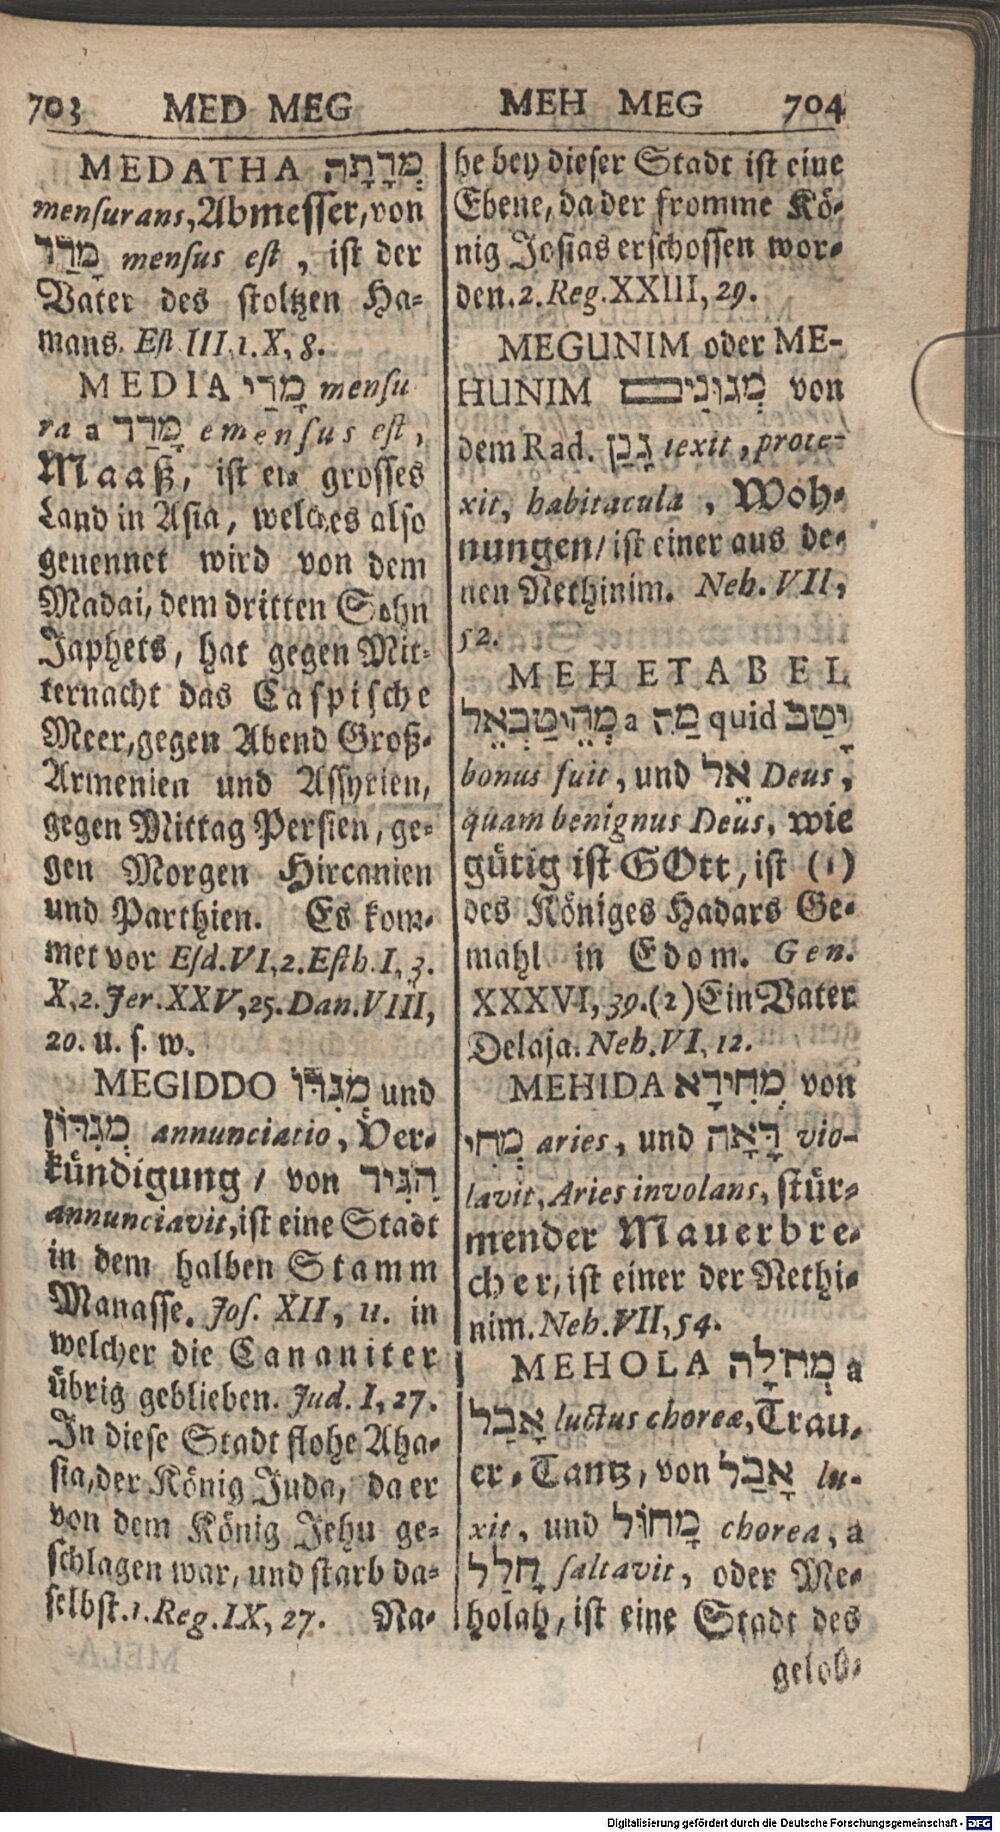 703 MED MEG
MEDATHA מְדָתָה
mensurans, Abmesser, von
מָדַד mensus est, ist der
Vater des stoltzen Ha-
mans. Est III, 1. X, 8.
MEDIA מָדַי mensu
ra a מָדַד emensus est,
Maaß, ist ein grosses
Land in Asia, welches also
genennet wird von dem
Madai, dem dritten Sohn
Japhets, hat gegen Mit-
ternacht das Caspische
Meer, gegen Abend Groß-
Armenien und Assyrien,
gegen Mittag Persien, ge-
gen Morgen Hircanien
und Parthien. Es kom-
met vor Esd. VI, 2. Esth. I, 3.
X, 2. Jer. XXV, 25. Dan. VIII,
20. u. s. w.
MEGIDDO מְגִדּוֹ und
מְגִדּוֹן annunciatio, Ver-
kündigung / von הִגִּיד
annunciavit, ist eine Stadt
in dem halben Stamm
Manasse. Jos. XII, 11. in
welcher die Cananiter
übrig geblieben. Jud. I, 27.
In diese Stadt flohe Aha-
sia, der König Juda, da er
von dem König Jehu ge-
schlagen war, und starb da-
selbst. 1. Reg. IX, 27. Na-
MEH MEG 704
he bey dieser Stadt ist eine
Ebene, da der fromme Kö-
nig Josias erschossen wor-
den. 2. Reg. XXIII, 29.
MEGUNIM oder ME-
HUNIM מְגוּנִים von
dem Rad. גָּנַן texit, prote-
xit, habitacula, Woh-
nungen / ist einer aus de-
nen Nethinim. Neh. VII,
52.
MEHETABEL
מְהֵיטַבְאֵל a מַה quid יָטַב
bonus fuit, und אל Deus,
quam benignus Deus, wie
gütig ist GOtt, ist (1)
des Königes Hadars Ge-
mahl in Edom. Gen.
XXXVI, 39. (2) Ein Vater
Delaja. Neh. VI, 12.
MEHIDA מְחִידָא von
מְחִי aries, und דָּאָה vio-
lavit, Aries involans, stür-
mender Mauerbre-
cher, ist einer der Nethi-
nim. Neh. VII, 54.
MEHOLA מְחלָה a
אָבַל luctus choreæ, Trau-
er-Tantz, von אָבַל lu-
xit, und מָחוֹל chorea, a
חָלַל saltavit, oder Me-
holah, ist eine Stadt des
gelob-
Digitalisierung gefördert durch die Deutsche Forschungsgemeinschaft - DFG